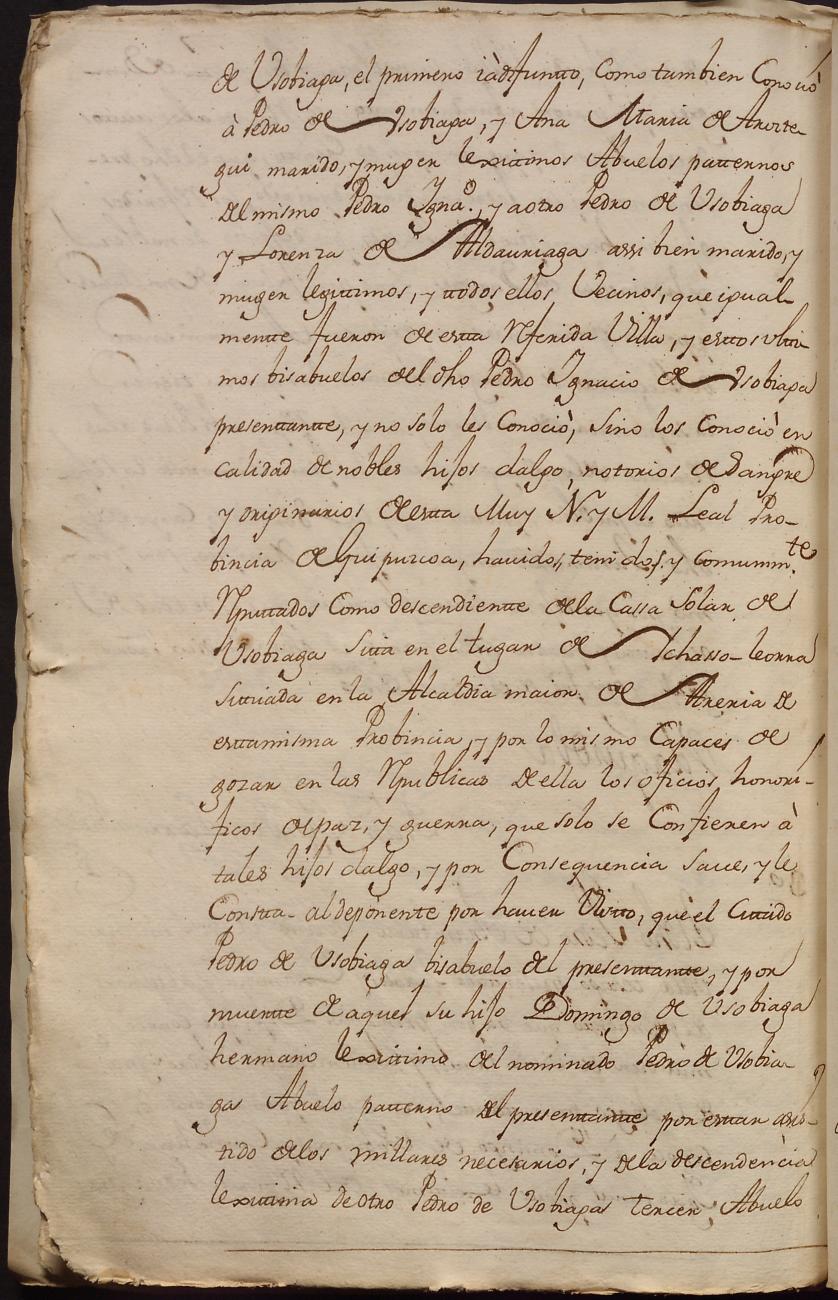 de Vsobiaga, el primero ià difuntto, como tambien Conociò
à Pedro de Vsobiaga, y Ana Maria de Arizte-
gui marido, y muger lexittimos Abuelos patternos
del mismo Pedro Ygnaº. y a otro Pedro de Vsobiaga
y Lorenza de Aldauriaga assi bien marido, y
muger legittimos, y ttodos ellos, Vecinos, que igual-
mentte fueron de estta Referida Villa, y esttos vltti-
mos bisabuelos del dho Pedro Ygnacio de Vsobiaga
presenttantte, y no solo les Conociò, Sino los Conociò en
Calidad de nobles hijos dalgo, notorios de Sangre
y originarios de estta Muy N. y M. Leal Pro-
bincia de Guipuzcoa, hauidos, tenidos, y comunmte.
Reputtados Como descendientte de la Cassa Solar de
Vsobiaga Sitta en el lugar de Ychasso-leorra
Sittuada en la Alcaldia maior de Areria de
estta misma Probincia, y por lo mismo Capaces de
gozar en las Republicas de ella los oficios honori-
ficos de paz, y guerra, que solo se Confieren à
tales hijos dalgo, y por Consequencia Saue, y le
Constta al deponente por hauer Vistto, que el Cittado
Pedro de Vsobiaga bisabuelo del presenttantte, y por
muertte de aquel su hijo Domingo de Vsobiaga
hermano lexittimo del nominado Pedro de Vsobia-
ga Abuelo patterno del presenttantte por esttar asis-
tido de los millares necesarios, y de la descendencia
lexittima de otro Pedro de Vsobiaga tercer Abuelo